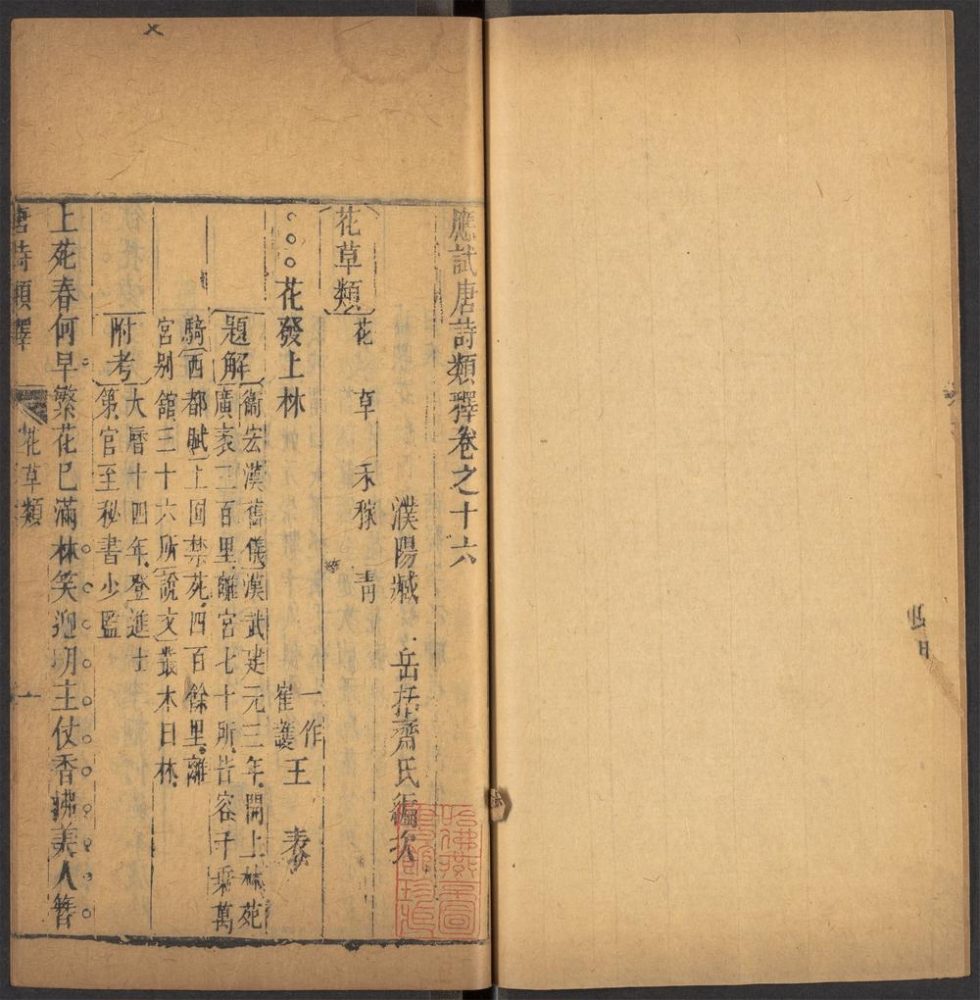 應試唐詩類釋卷之十六
濮陽臧 岳括齋氏編次
花草類 花 草 禾稼 青
花發上林 一作崔護 王 表
題解 衞宏漢舊儀漢武建元三年開上林苑
廣袤三百里離宮七十所皆容千乘萬
騎西都賦上囿禁苑四百餘里離
宮別館三十六所說文叢木曰林
附考 大曆十四年登進士
第官至秘書少監
上苑春何早繁花已滿林笑迎明主仗香拂美人簪
唐詩類釋 花草類 一
哈佛燕京圖書館珍藏